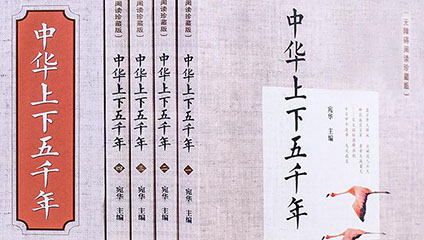 中华上下五千年
阅读珍藏版）
中华上下五千年
四
宛华 主编
阅读珍藏版）
中华上下五千年
三
宛华 主编
阅读珍藏版）
中华上下五千年
二
宛华 主编
阅读珍藏版）
中华上下五千年
一
宛华 主编
（无障碍阅读珍藏版）
中华上下五千年
宛华 主编